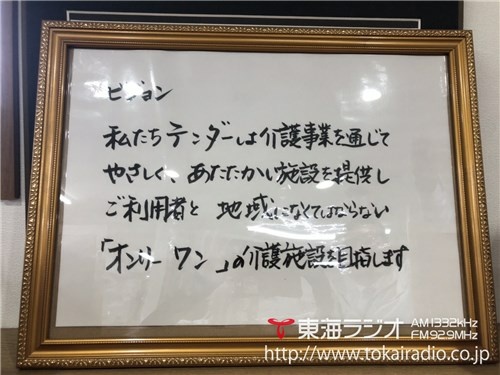 ビジョン
私たちテンダーは介護事業を通じて
やさしく、あたたかい施設を提供し
ご利用者と 地域になくてはならない
「オンリーワン」の介護施設を目指します
東海ラジオ AM1332kHz FM92.9MHz
http://www.tokairadio.co.jp